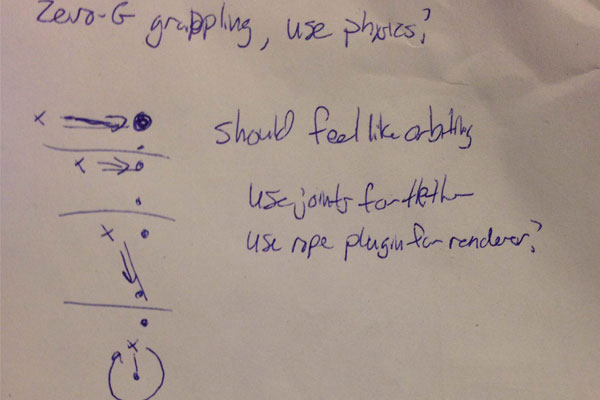 Zero-G grappling, use physics?
X
should feel like orbiting
X
use joints for tether
X
use rope plugin for renderer?
X